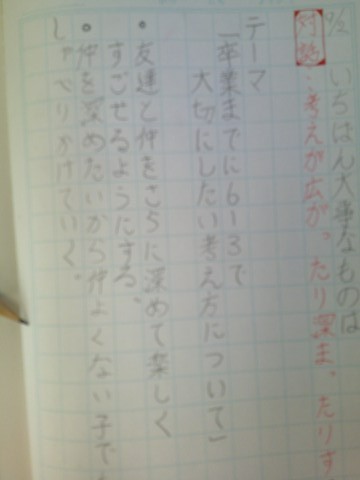 いちばん大事なものは
対話 考えが広がったり深まったりす
テーマ
「卒業までに6-3で
大切にしたい考え方について」
• 友達と仲をさらに深めて楽しく
すごせるようにする。
• 仲を深めたいから仲よくない子でも
しゃべりかけていく。